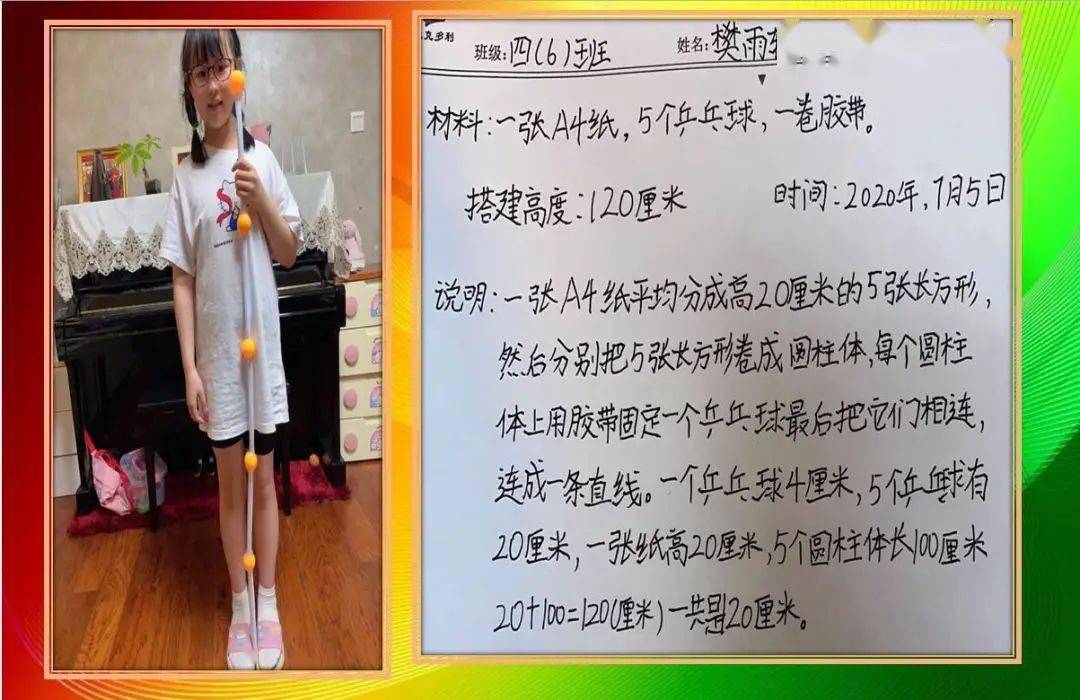 克多利
班级:四(6)班 姓名:樊雨
材料:一张A4纸,5个乒乓球,一卷胶带。
搭建高度:120厘米 时间:2020年,7月5日
说明:一张A4纸平均分成高20厘米的5张长方形,
然后分别把5张长方形卷成圆柱体,每个圆柱
体上用胶带固定一个乒乓球最后把它们相连,
连成一条直线。一个乒乓球4厘米,5个乒乓球有
20厘米,一张纸高20厘米,5个圆柱体长100厘米
20+100=120(厘米)一共是120厘米。